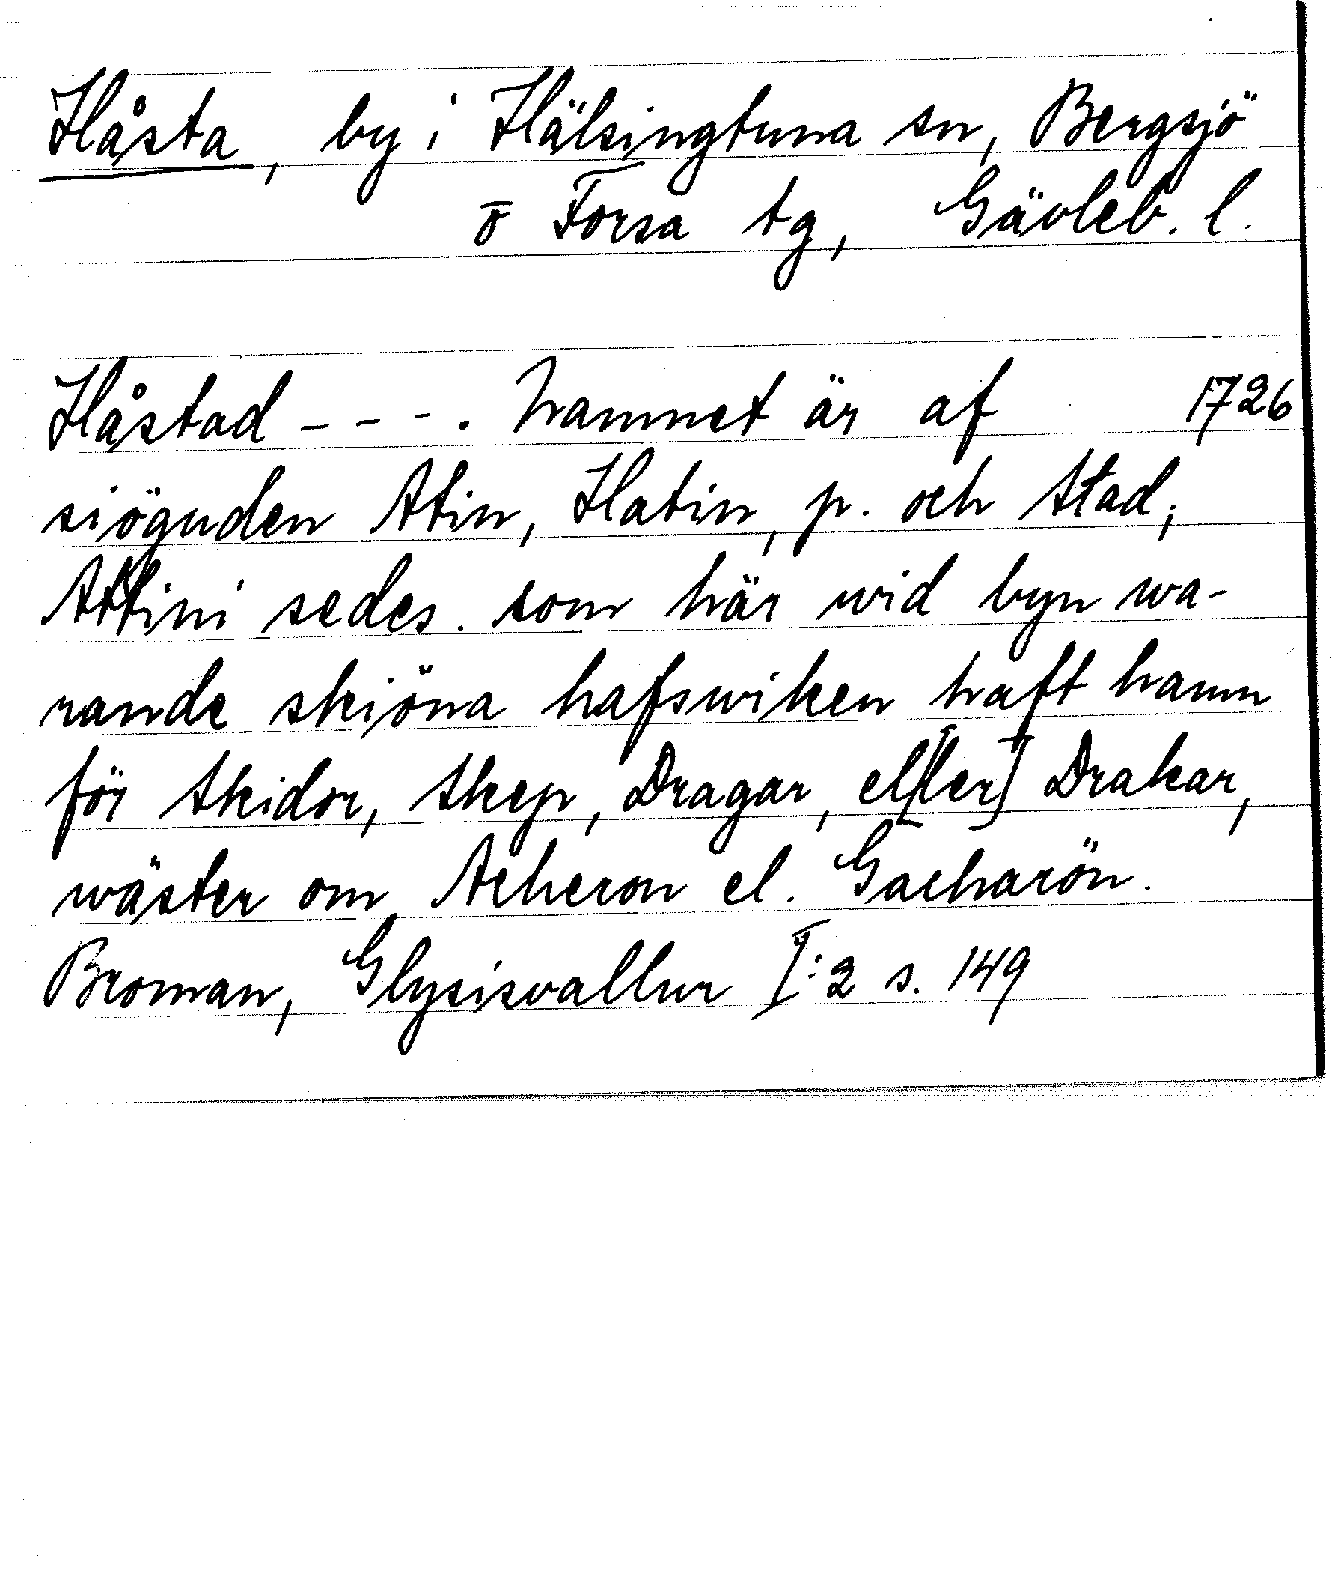 Håsta, by i Hälsingtuna sn, Bergsjö
o Forsa tg, Gävleb. l.
Håstad - - - . Namnet är af 1726
siöguden Atin, Hatin, p. och Stad;
Attini sedes. som här wid byn wa-
rande skiöna hafswiken haft hamn
för Skidor, Skep, Dragar, el[ler] Drakar,
wäster om Acheron el. Gacharön.
Broman, Glysisvallur I:2 s. 149